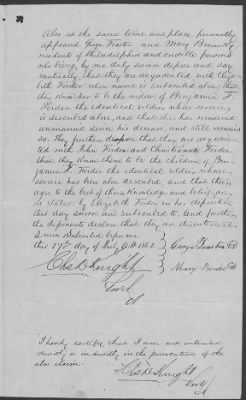 Also at the same time and place, personally
appeared George Fraster and Mary
residents of Philadelphia and credible persons
who being by me duly sworn depose and say
mutually, that they are acquainted with Eliza
beth Forder whose name is Subscribed above, that
they know her to be the widow of Benjamin F.
Forder the identical soldier whose service
is described above, and that she has remained
unmarried since his decease, and still remains
so. They further depose that they are acquain
ted with John Forder and Forder
that they know them to be the children of Ben
jamin F. Forder the identical soldier whose
service has been above described, and that their
ages to the best of their Knowledge and belief are
as stated by Elizabeth Forder in her deposition
this day sworn and Subscribed to. And further
the deponents declare that they are disinterested.
Sworn & Subscribed before me
this 17th day of July A.D. 1862
Chas D Knight
George Fraster
Mary
I hereby certify that I am not interested
directly or indirectly in the prosecution of the
above claim
Chas D Knight